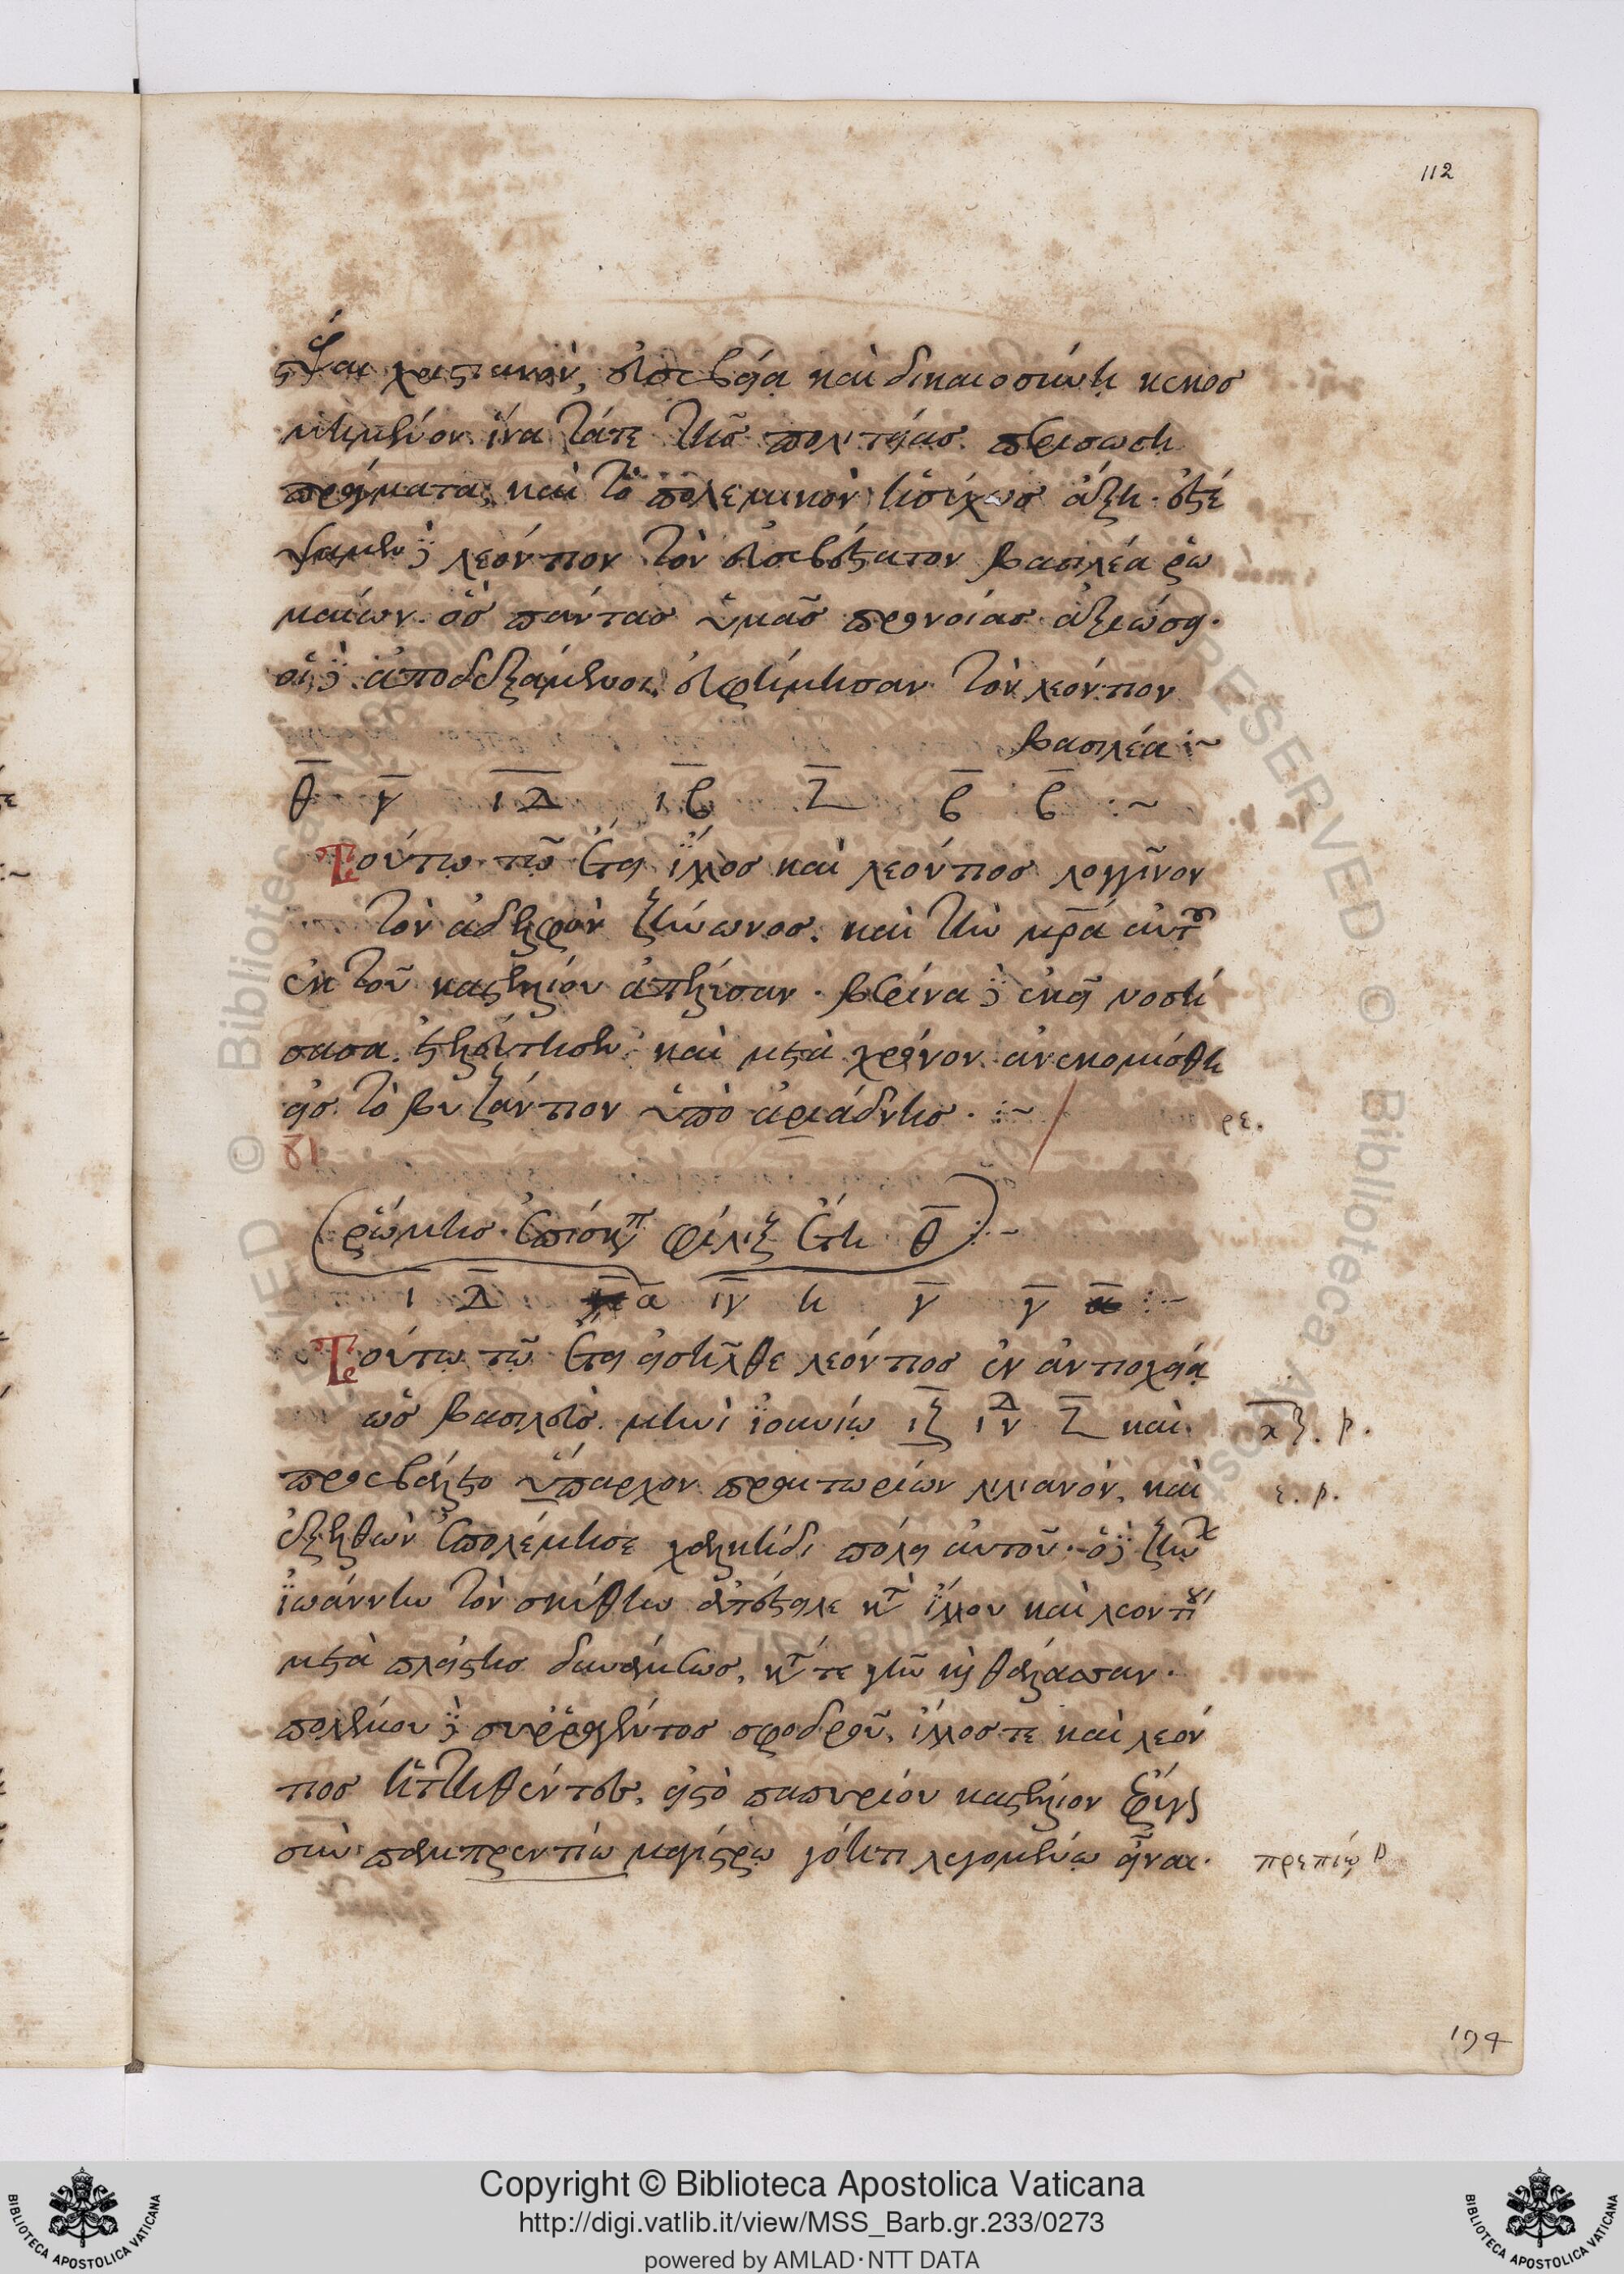 112
στέψαι χριστιανὸν, εὐσεβείᾳ καὶ δικαιοσύνῃ κεκοσ
μημένον. ἵνα τάτε τῆς πολιτείας περισώσῃ
πράγματα, καὶ τὸ πολεμικὸν ἡσύχως ἄξῃ. ἐστέ
ψαμεν δὲ λεόντιον τὸν εὐσεβέστατον βασιλέα ῥω
μαίων. ὃς πάντας ὑμᾶς προνοίας ἀξιώσει.
οἱ δὲ ἀποδεξάμενοι, εὐφήμησαν τὸν λεόντιον
βασιλέα :~
θ γ ιδ ιβ ζ β β :~
Τούτῳ τῷ ἔτει ἴλλος καὶ λεόντιος λογγῖνον
τὸν ἀδελφὸν ζήνωνος. καὶ τὴν μρ̅α αὐτοῦ
ἐκ τοῦ καστελίου ἀπέλυσαν. βερίνα δὲ ἐκεῖ νοσή
σασα. ἐτελεύτησεν. καὶ μετὰ χρόνον ἀνεκομίσθη
εἰς τὸ βυζάντιον ὑπὸ ἀριάδνης. :~ ρε.
ῥώμης ἐπίσκοπ φίλιξ ἔτη θ :~
ι δ α ιγ η γ γ :~
Τούτῳ τῷ ἔτει εἰσῆλθε λεόντιος ἐν ἀντιοχείᾳ
ὡς βασιλεὺς. μηνὶ ἰουνίῳ ιζ ινδ ζ καὶ
προεβάλετο ὕπαρχον πραιτωρίων λιλιανόν, καὶ ε. ρ.
ἐξελθὼν ἐπολέμησε χαλκίδι πόλει αὐτοῦ. ὁ δὲ ζήνω
ἰωάννην τὸν σκύθην ἀπέστειλε κατὰ ἴλλου καὶ λεοντίου
μετὰ πλείστης δυνάμεως, κατά τε γῆν καὶ θάλασσαν.
πολέμου δὲ συῤῥαγέντος σφοδροῦ, ἴλλος τε καὶ λεόν
τιος ἡττηθέντες, εἰς τὸ παπυρίου καστέλιον φεύγει
σὺν παμπρεντίῳ μαγίστρῳ γόητι λεγομένῳ εἶναι. πρεπίῳ ρ
194
Copyright © Biblioteca Apostolica Vaticana
http://digi.vatlib.it/view/MSS_Barb.gr.233/0273
powered by AMLAD·NTT DATA
BIBLIOTECA APOSTOLICA VATICANA
BIBLIOTECA APOSTOLICA VATICANA